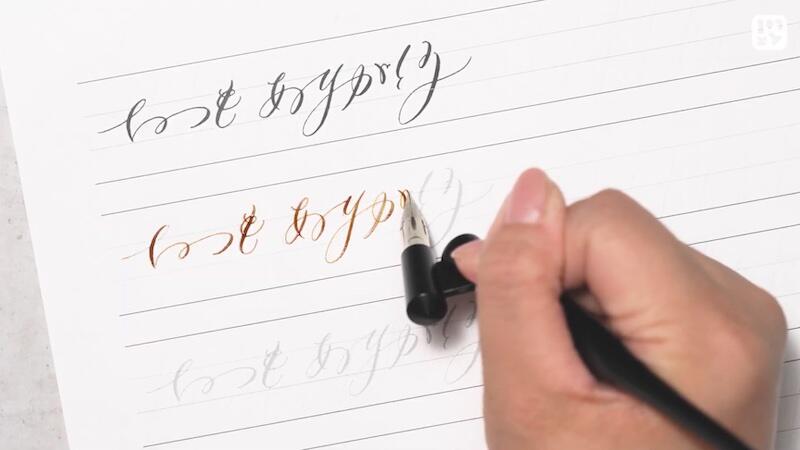 いつも ありがとう
いつも ありが
いつも ありがとう